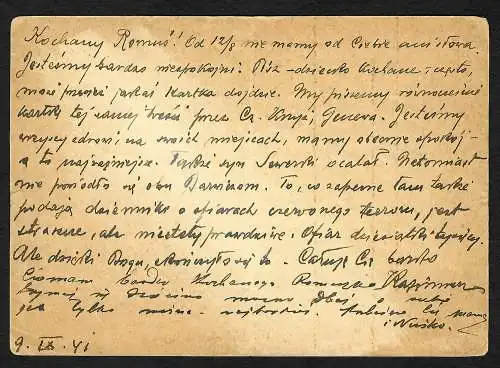 Kochany Romuś! Od 12/8 nie mamy od Ciebie ani słowa.
Jesteśmy bardzo niespokojni. Pisz dziecko kochane i często,
może prędzej jakaś kartka dojdzie. My piszemy równocześnie
kartki tej samej treści przez Cz. Krzyż, Genewa. Jesteśmy
wszyscy zdrowi, na swoich miejscach, mamy obecnie spokój
a to najważniejsze. Także syn Sewerki ocalał. Natomiast
nie powiodło się obu Darmizom. To, co zapewne tam także
podają dzienniki o ofiarach czerwonego terroru, jest
straszne, ale niestety prawdziwe. Ofiar dziesiątki tysięcy.
Ale dzięki Bogu, skończyło się to. Całuję Cię bardzo
Ściskam bardzo Kochanego Romusia Kazimierz
o siebie
jak tylko można najbardziej. Całuję Cię mama
i Nuśka
9. IX. 41